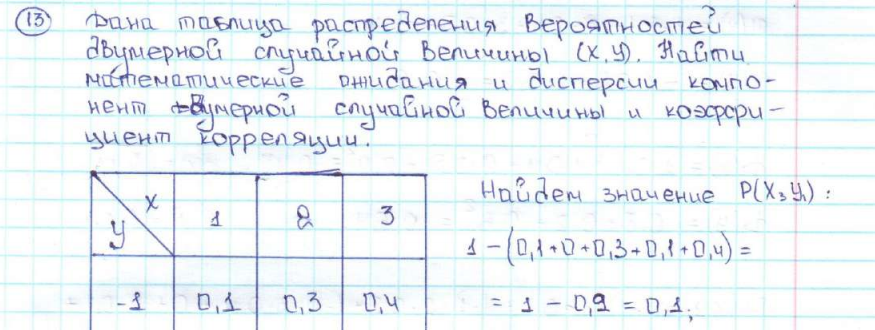 13 Дана таблица распределения вероятностей
двумерной случайной величины (X,Y). Найти
математические ожидания и дисперсии компо-
нент двумерной случайной величины и коэффи-
циент корреляции.
Найдем значение P(X₃Y₁):
X 1 2 3
Y
1-(0,1+0+0,3+0,1+0,4)=
-1 0,1 0,3 0,4
= 1 - 0,9 = 0,1;